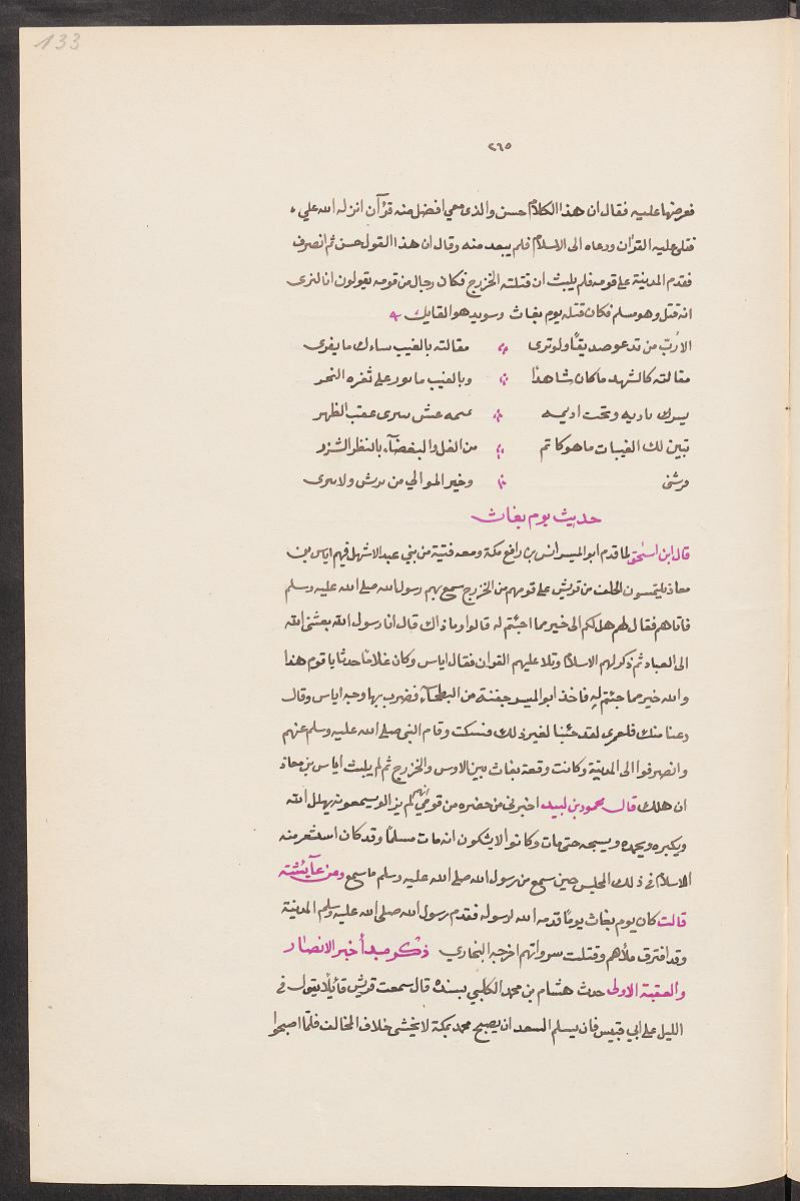 133
٢٦٥
فعرضها عليه فقال ان هذا الكلام حسن والذى معي افضل منه قرآن انزله الله علي ،
فتلى عليه القرٰان ودعاه الى الاسلام فلم يبعد منه وقال ان هذا القول حسن ثم انصرف
فقدم المدينة على قومه فلم يلبث ان قتلته الخزرج فكان رجال من قومه يقولون انا لنرى
انه قتل وهو مسلم فكان قتله يوم بغاث وسويد هو القايل
الا رُبّ من تدعو صديقًا ولو ترى مقالته بالغيب ساءك ما يفرى
مقالته كالشهد ما كان شاهدا وبالغيب ماثور على ثغره النحر
يسرك باديه وتحت اديمه غش تبرى عقب الظهر
تبين لك الغيبات ما هو كاتم من الغل والبغضآء بالنظر الشزر
فرشنى وخير الموالي من يريش ولا يبرى
حديث يوم بغاث
قال ابن اسحٰق لما قدم ابو الميسر انس بن رافع مكة ومعه فتية من بني عبد الاشهل فيهم اياس بن
معاذ يلتمسون الحلف من قريش على قومهم من الخزرج سمع بهم رسول الله صلى الله عليه وسلم
فاتاهم فقال لهم هل لكم الى خير مما اجئتم له قالوا وما ذاك قال انا رسول الله بعثنى الله
الى العباد ثم ذكر لهم الاسلام وتلا عليهم القران فقال اياس وكان غلامًا حدثا يا قوم هذا
والله خير مما جئتم له فاخذ ابو الميسر جفنة من البطحآء فضرب بها وجه اياس وقال
دعنا منك فلعمرى لقد جئنا لغير ذلك فسكت وقام النبى صلى الله عليه وسلم عنهم
وانصرفوا الى المدينة وكانت وقعة بغاث بين الاوس والخزرج ثم لم يلبث اياس بن معاذ
ان هلك قال محمود بن لبيد اخبرنى من حضره من قومي انهم لم يزالو يسمعونه يهلل الله
ويكبره ويحمده ويسبحه حتى مات وكانوا لا يشكون انه مات مسلمًا وقد كان استشعر منه
الاسلام فى ذلك المجلس حين سمع من رسول الله صلى الله عليه وسلم ما سمع ومن عآيشه
قالت كان يوم بغاث يومًا قدمه الله لرسوله فقدم رسول الله صلى الله عليه وسلم المدينة
وقد افترق ملأهم وقتلت سرواتهم اخرجه البخاري ذكر مبدأ خبر الانصار
والعقبة الاولى حدث هشام بن محمد الكلبي بسنده قال سمعت قريش قآئلًا يقول فى
الليل على ابي قبيس فان يسلم السعد ان يصبح محمد بمكة لا يخشى خلاف المخالف فلمّا اصبحوا